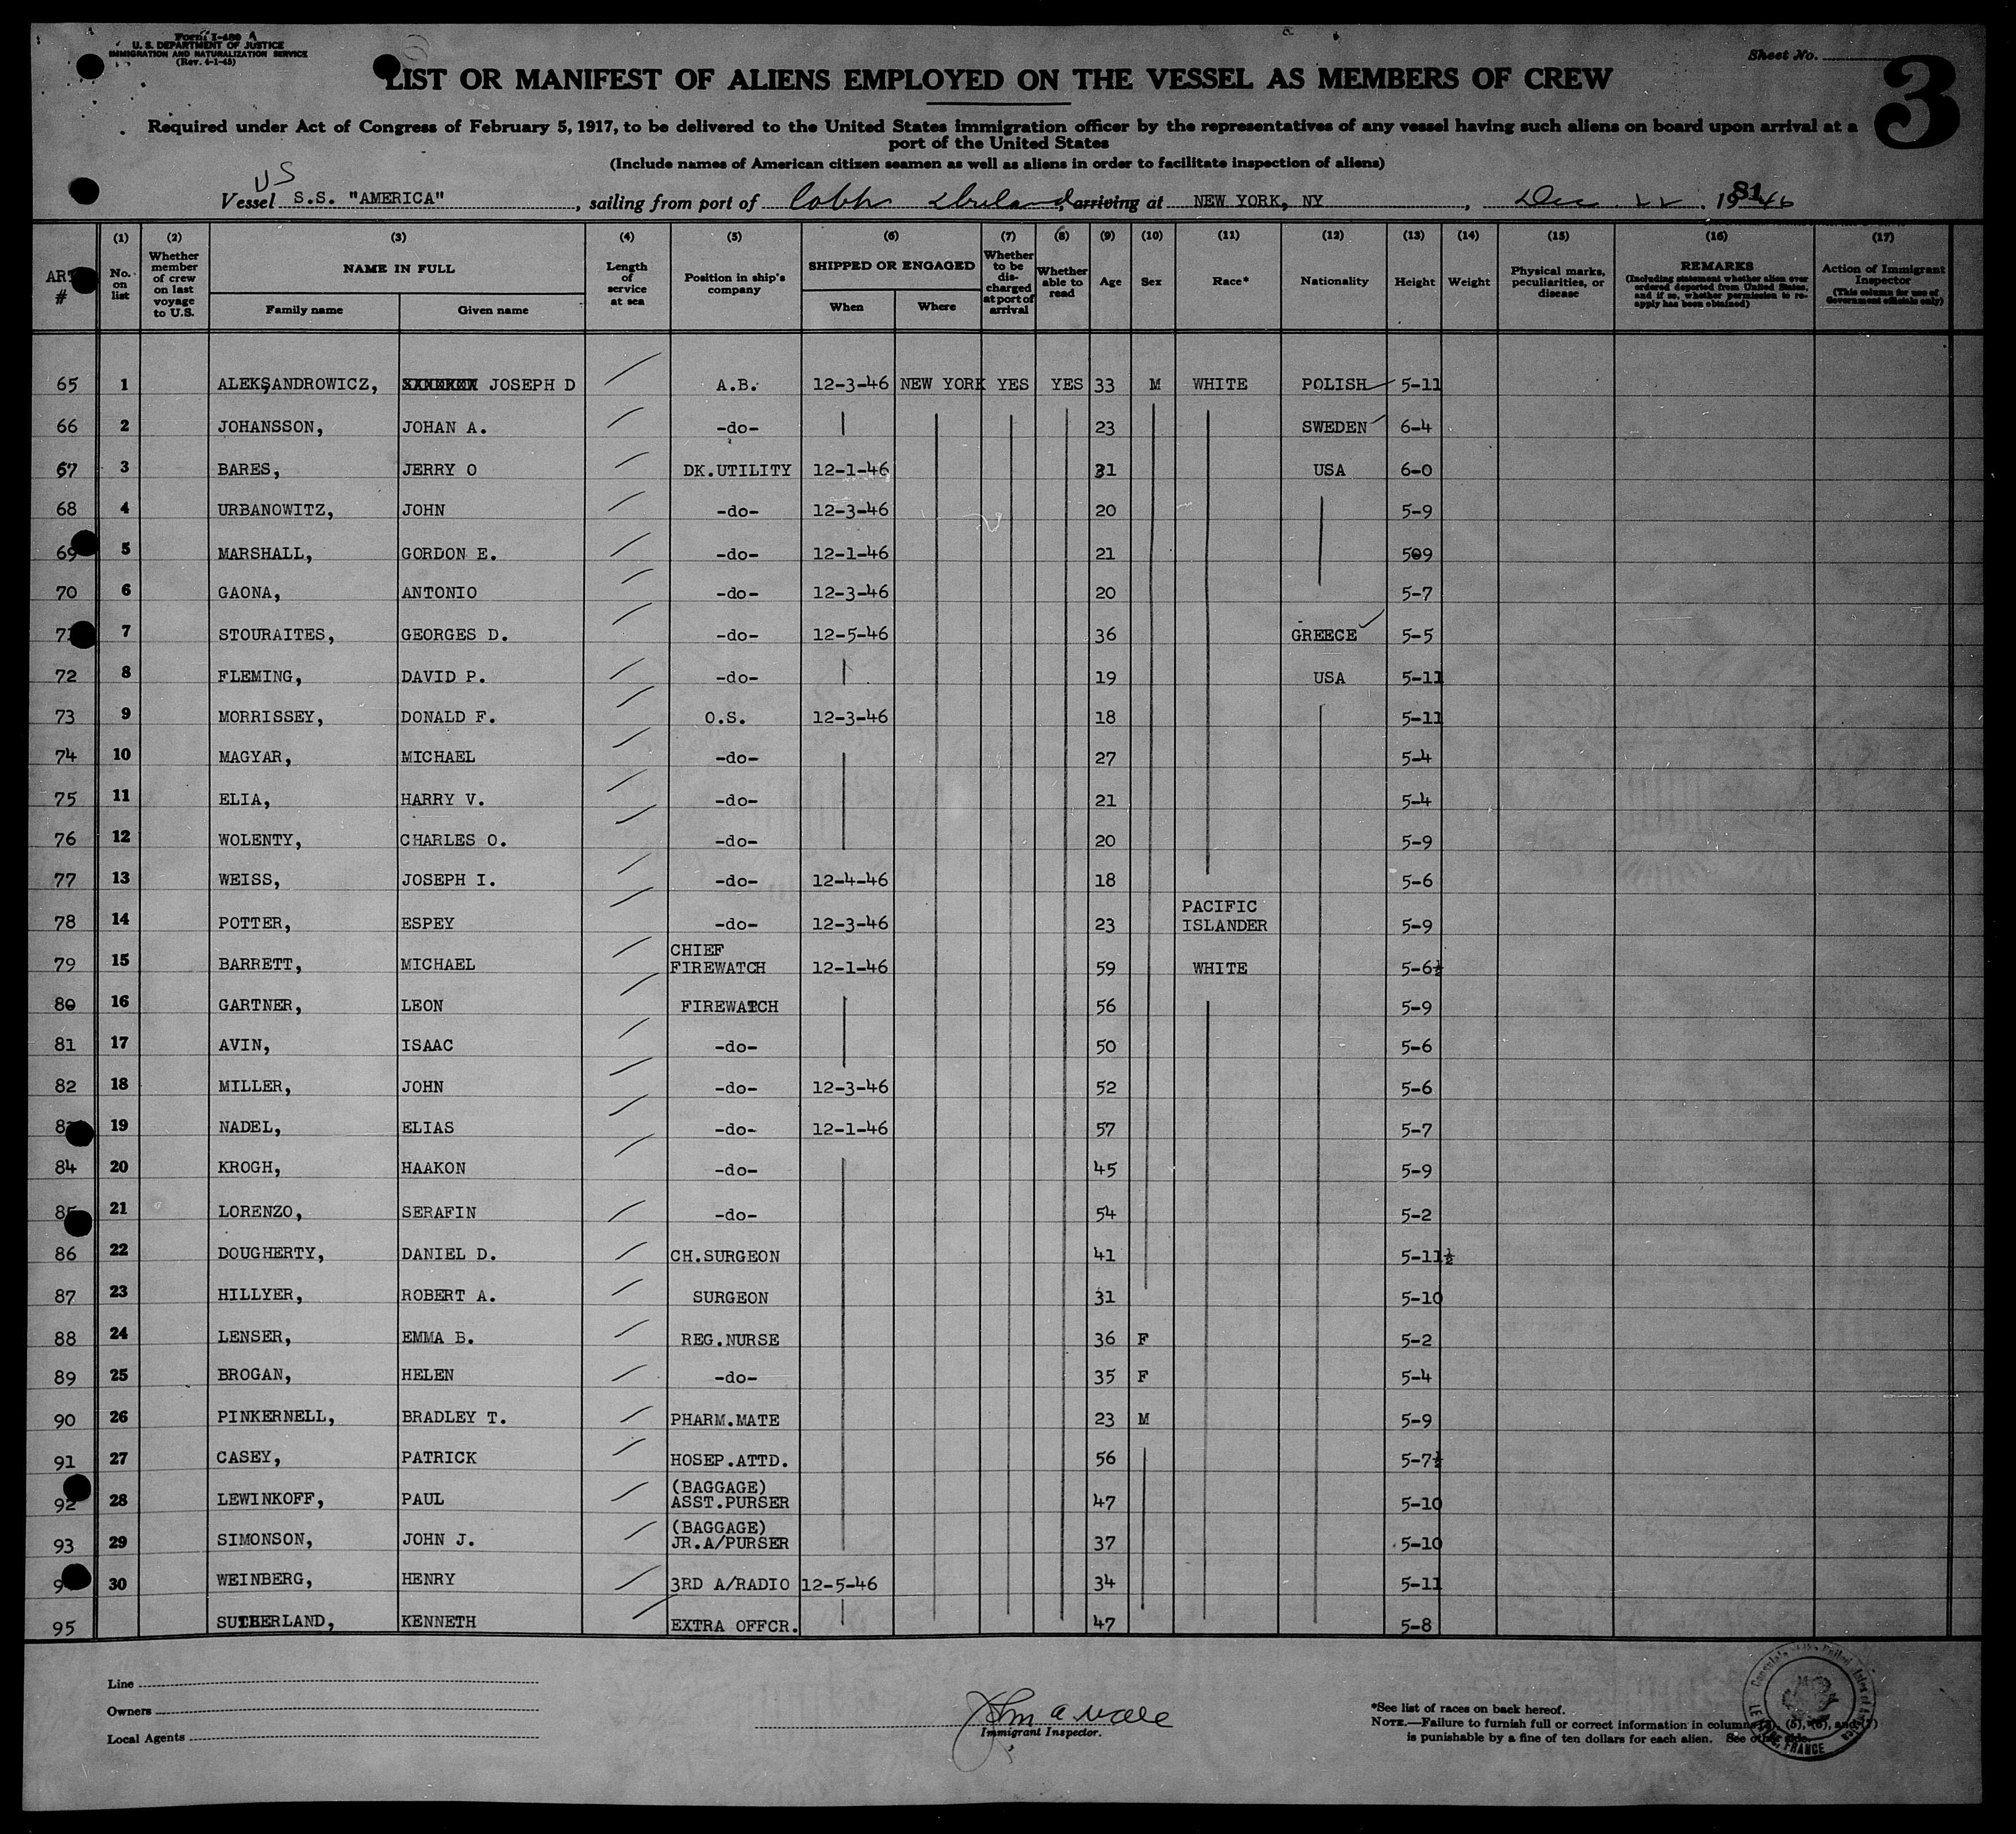 Form I-480 A
U. S. DEPARTMENT OF JUSTICE
IMMIGRATION AND NATURALIZATION SERVICE
(Rev. 4-1-45)
Sheet No.
3
LIST OR MANIFEST OF ALIENS EMPLOYED ON THE VESSEL AS MEMBERS OF CREW
Required under Act of Congress of February 5, 1917, to be delivered to the United States immigration officer by the representatives of any vessel having such aliens on board upon arrival at a
port of the United States
(Include names of American citizen seamen as well as aliens in order to facilitate inspection of aliens)
US
Vessel S.S. "AMERICA", sailing from port of Cobh Ireland, arriving at NEW YORK, NY, Dec. 22. 1946
ART # (1) No. on list (2) Whether member of crew on last voyage to U.S. (3) NAME IN FULL Family name Given name (4) Length of service at sea (5) Position in ship's company (6) SHIPPED OR ENGAGED When Where (7) Whether to be discharged at port of arrival (8) Whether able to read (9) Age (10) Sex (11) Race* (12) Nationality (13) Height (14) Weight (15) Physical marks, peculiarities, or disease (16) REMARKS (Including statement whether alien ever ordered deported from United States, and if so, whether permission to reapply has been obtained) (17) Action of Immigrant Inspector (This column for use of Government officials only)
65 1 ALEKSANDROWICZ, JOSEPH D A.B. 12-3-46 NEW YORK YES YES 33 M WHITE POLISH 5-11
66 2 JOHANSSON, JOHAN A. -do- 23 SWEDEN 6-4
67 3 BARES, JERRY O DK.UTILITY 12-1-46 31 USA 6-0
68 4 URBANOWITZ, JOHN -do- 12-3-46 20 5-9
69 5 MARSHALL, GORDON E. -do- 12-1-46 21 509
70 6 GAONA, ANTONIO -do- 12-3-46 20 5-7
71 7 STOURAITES, GEORGES D. -do- 12-5-46 36 GREECE 5-5
72 8 FLEMING, DAVID P. -do- 19 USA 5-11
73 9 MORRISSEY, DONALD F. O.S. 12-3-46 18 5-11
74 10 MAGYAR, MICHAEL -do- 27 5-4
75 11 ELIA, HARRY V. -do- 21 5-4
76 12 WOLENTY, CHARLES O. -do- 20 5-9
77 13 WEISS, JOSEPH I. -do- 12-4-46 18 5-6
78 14 POTTER, ESPEY -do- 12-3-46 23 PACIFIC ISLANDER 5-9
79 15 BARRETT, MICHAEL CHIEF FIREWATCH 12-1-46 59 WHITE 5-6½
80 16 GARTNER, LEON FIREWATCH 56 5-9
81 17 AVIN, ISAAC -do- 50 5-6
82 18 MILLER, JOHN -do- 12-3-46 52 5-6
8 19 NADEL, ELIAS -do- 12-1-46 57 5-7
84 20 KROGH, HAAKON -do- 45 5-9
85 21 LORENZO, SERAFIN -do- 54 5-2
86 22 DOUGHERTY, DANIEL D. CH.SURGEON 41 5-11½
87 23 HILLYER, ROBERT A. SURGEON 31 5-10
88 24 LENSER, EMMA B. REG.NURSE 36 F 5-2
89 25 BROGAN, HELEN -do- 35 F 5-4
90 26 PINKERNELL, BRADLEY T. PHARM.MATE 23 M 5-9
91 27 CASEY, PATRICK HOSEP.ATTD. 56 5-7½
92 28 LEWINKOFF, PAUL (BAGGAGE) ASST.PURSER 47 5-10
93 29 SIMONSON, JOHN J. (BAGGAGE) JR.A/PURSER 37 5-10
9 30 WEINBERG, HENRY 3RD A/RADIO 12-5-46 34 5-11
95 SUTHERLAND, KENNETH EXTRA OFFCR. 47 5-8
Line
Owners
Local Agents
Immigrant Inspector.
*See list of races on back hereof.
NOTE.—Failure to furnish full or correct information in columns (5), (6), and (7)
is punishable by a fine of ten dollars for each alien. See other side.
FRANCE